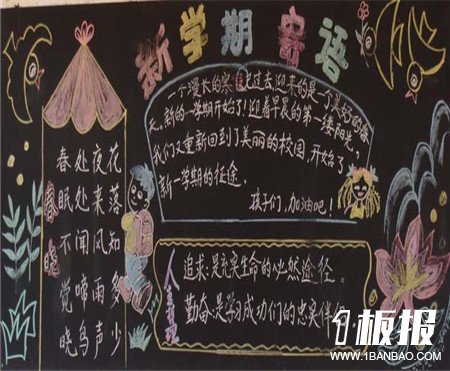 新学期寄语
一个漫长的寒假已过去,迎来的是一个美好的春
天。新的一学期开始了!迎着早晨的第一缕阳光,
我们又重新回到了美丽的校园,开始了
新一学期的征途。
孩子们,加油吧!
春晓
春眠不觉晓
处处闻啼鸟
夜来风雨声
花落知多少
人生
追求:是充实生命的必然途径。
勤奋:是学习成功们的忠实伴
板报
WWW.1BANBAO.COM